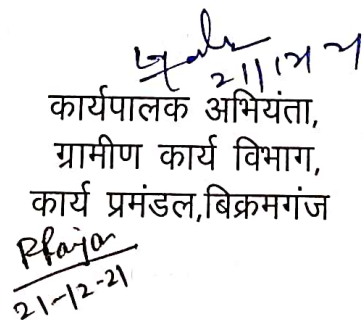 कार्यपालक अभियंता,
ग्रामीण कार्य विभाग,
कार्य प्रमंडल,बिक्रमगंज
21-12-21